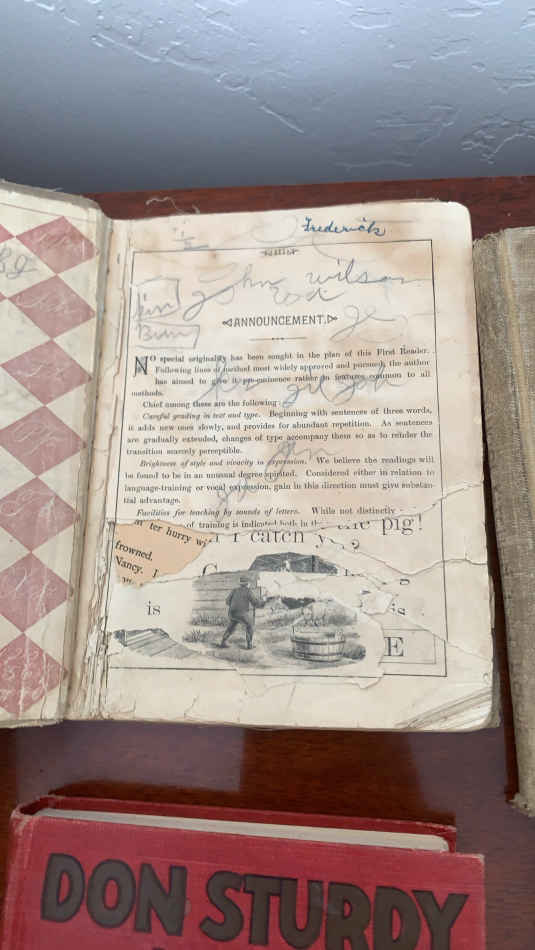 Frederick
John wilson
Jim
Bunny
ANNOUNCEMENT.
NO special originality has been sought in the plan of this First Reader.
Following lines of method most widely approved and pursued, the author
has aimed to give it pre-eminence rather in features common to all
methods.
Chief among these are the following:
Careful grading in text and type. Beginning with sentences of three words,
it adds new ones slowly, and provides for abundant repetition. As sentences
are gradually extended, changes of type accompany them so as to render the
transition scarcely perceptible.
Brightness of style and vivacity in expression. We believe the readings will
be found to be in an unusual degree spirited. Considered either in relation to
language-training or vocal expression, gain in this direction must give substan-
tial advantage.
Facilities for teaching by sounds of letters. While not distinctly
of training is indicated both in
pig!
ter hurry
I catch
frowned.
Nancy.
is
is
E
DON STURDY